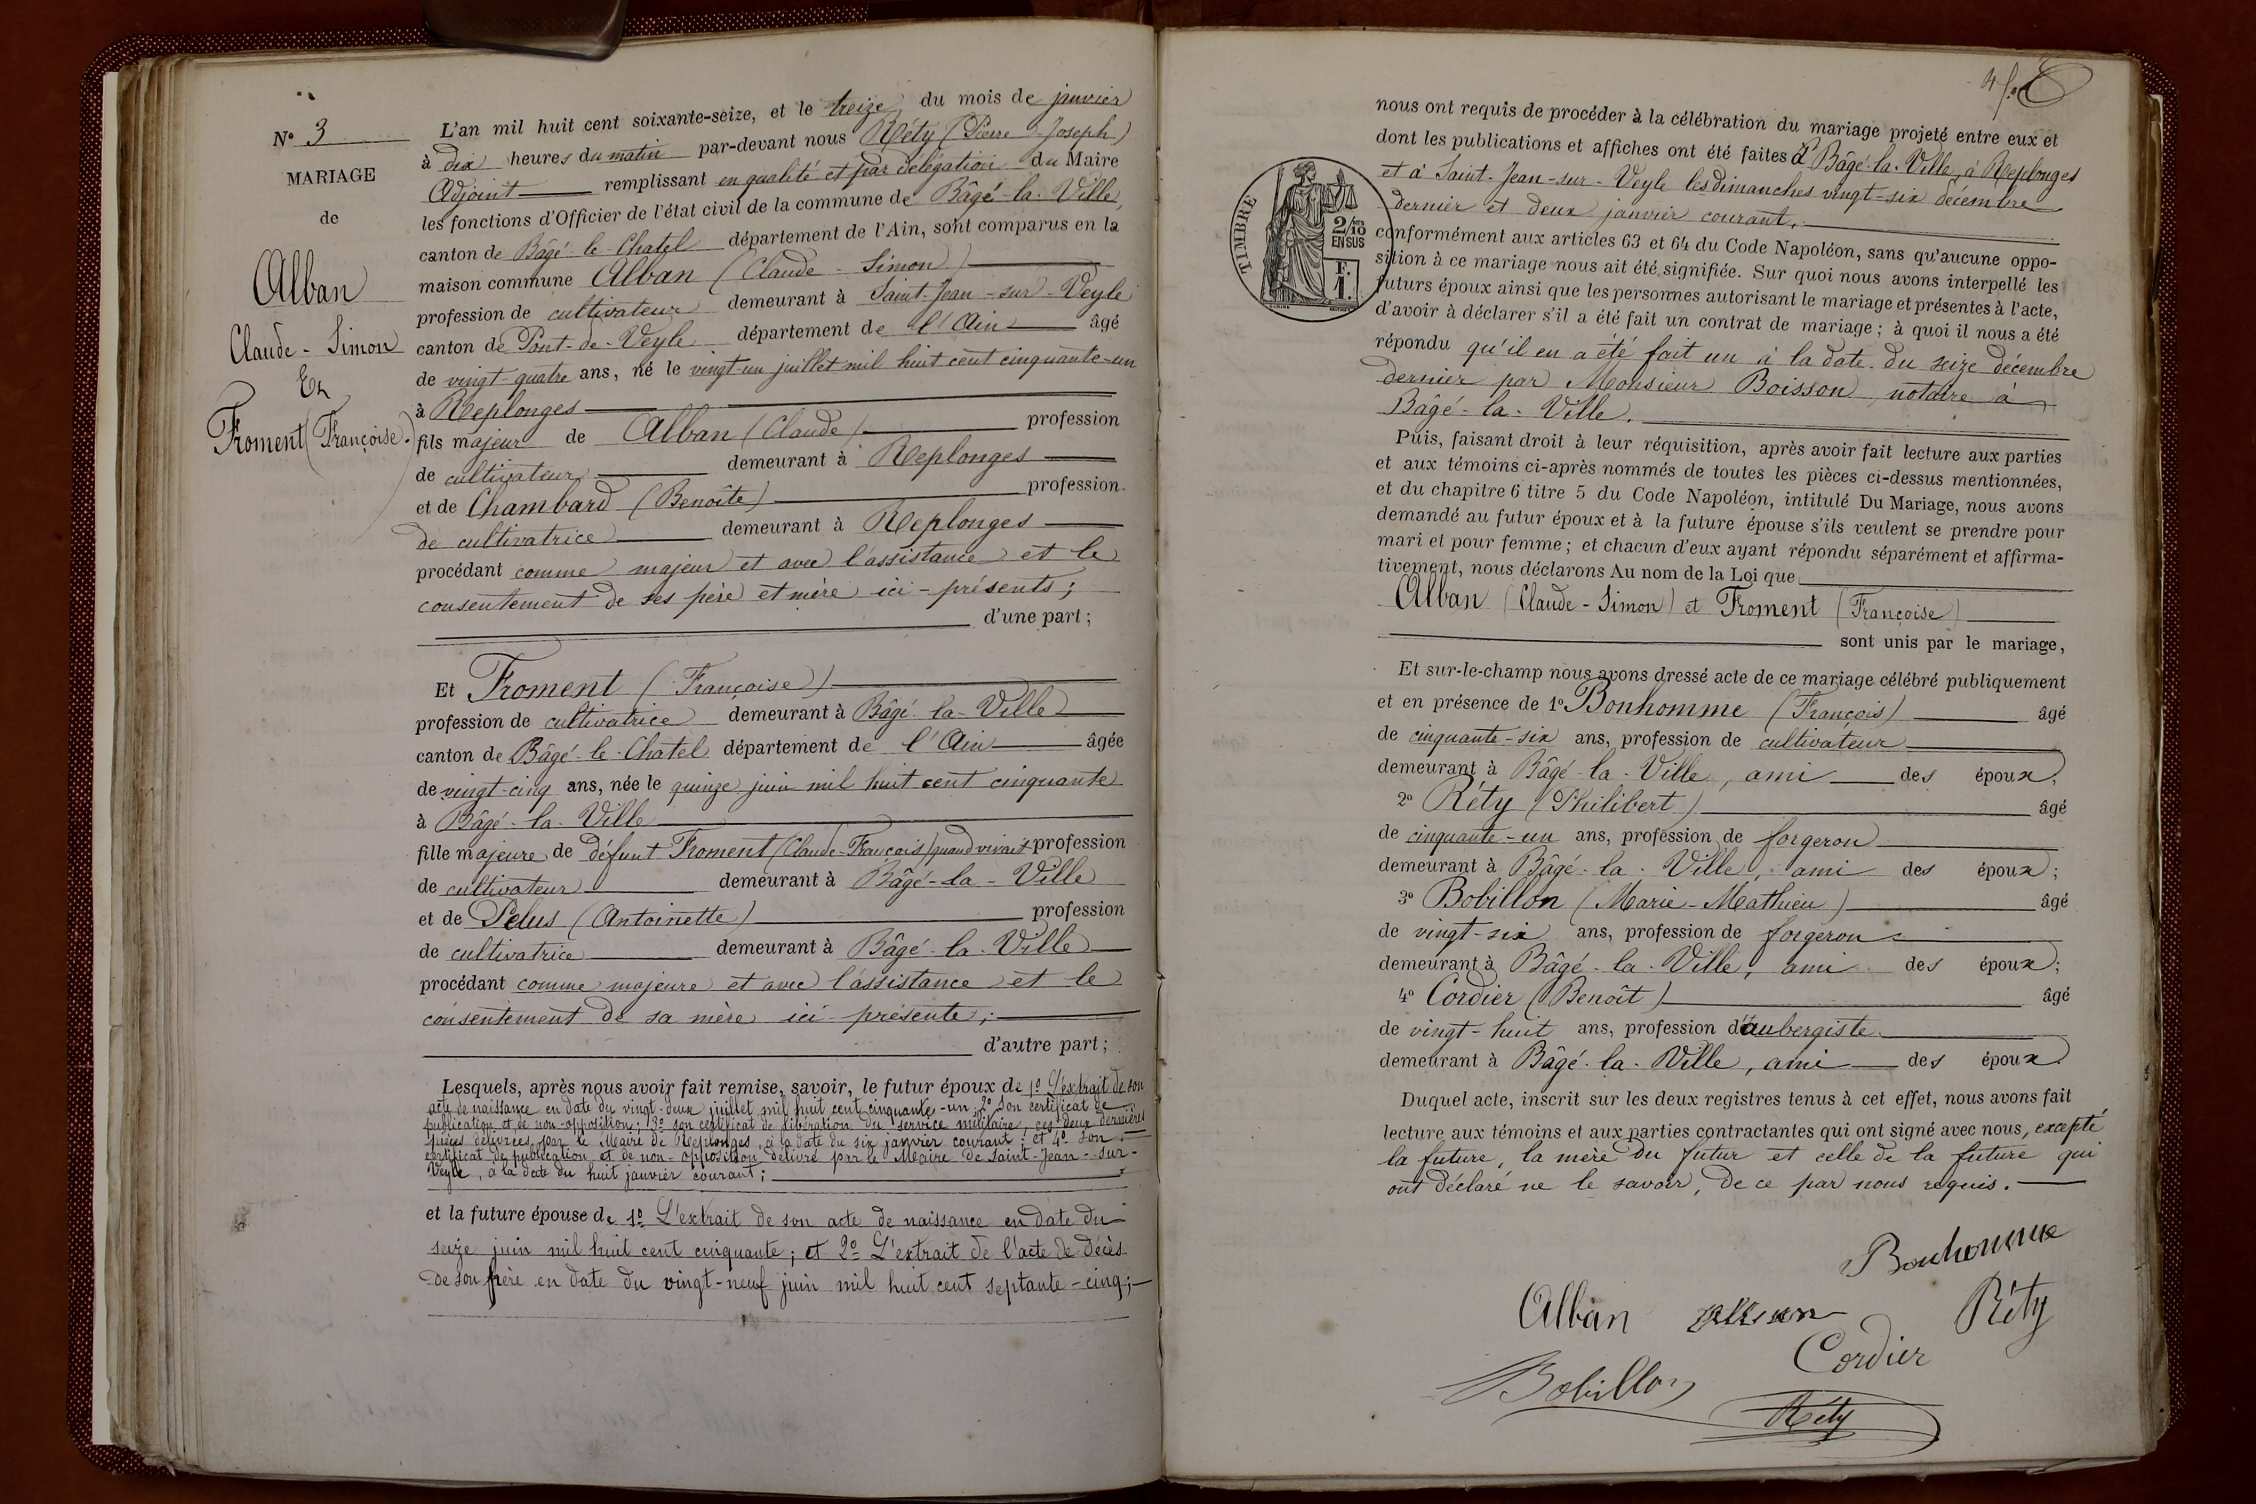 N° 3
MARIAGE
de
Alban
Claude - Simon
Et
Froment (Françoise.)
L'an mil huit cent soixante-seize, et le treize du mois de janvier
à dix heures du matin par-devant nous Réty (Pierre - Joseph)
Adjoint remplissant en qualité et par délégation du Maire
les fonctions d'Officier de l'état civil de la commune de Bâgé-la-Ville,
canton de Bâgé-le-Chatel département de l'Ain, sont comparus en la
maison commune Alban (Claude - Simon)
profession de cultivateur demeurant à Saint-Jean-sur-Veyle
canton de Pont-de-Veyle département de l'Ain âgé
de vingt-quatre ans, né le vingt-un juillet mil huit cent cinquante-un
à Replonges
fils majeur de Alban (Claude) profession
de cultivateur demeurant à Replonges
et de Chambard (Benoîte) profession
de cultivatrice demeurant à Replonges
procédant comme majeur et avec l'assistance et le
consentement de ses père et mère ici-présents;
d'une part;
Et Froment (Françoise)
profession de cultivatrice demeurant à Bâgé-la-Ville
canton de Bâgé-le-Chatel département de l'Ain âgée
de vingt-cinq ans, née le quinze juin mil huit cent cinquante
à Bâgé-la-Ville
fille majeure de défunt Froment (Claude-François) quand vivait profession
de cultivateur demeurant à Bâgé-la-Ville
et de Pelus (Antoinette) profession
de cultivatrice demeurant à Bâgé-la-Ville
procédant comme majeure et avec l'assistance et le
consentement de sa mère ici-présente;
d'autre part;
Lesquels, après nous avoir fait remise, savoir, le futur époux de 1° L'extrait de son
acte de naissance en date du vingt-deux juillet mil huit cent cinquante-un; 2° son certificat de
publication et de non-opposition; 3° son certificat de libération du service militaire, ces deux dernières
pièces délivrées par le Maire de Replonges, à la date du six janvier courant; et 4° son
certificat de publication et de non-opposition délivré par le Maire de Saint-Jean-sur-
Veyle, à la date du huit janvier courant;
et la future épouse de 1° L'extrait de son acte de naissance en date du
seize juin mil huit cent cinquante; et 2° L'extrait de l'acte de décès
de son père en date du vingt-neuf juin mil huit cent septante-cinq;
nous ont requis de procéder à la célébration du mariage projeté entre eux et
dont les publications et affiches ont été faites à Bâgé-la-Ville, à Replonges
et à Saint-Jean-sur-Veyle les dimanches vingt-six décembre
dernier et deux janvier courant,
conformément aux articles 63 et 64 du Code Napoléon, sans qu'aucune oppo-
sition à ce mariage nous ait été signifiée. Sur quoi nous avons interpellé les
futurs époux ainsi que les personnes autorisant le mariage et présentes à l'acte,
d'avoir à déclarer s'il a été fait un contrat de mariage; à quoi il nous a été
répondu qu'il en a été fait un à la date du seize décembre
dernier par Monsieur Boisson, notaire à
Bâgé-la-Ville.
TIMBRE
2/10
EN SUS
F.
1.
Puis, faisant droit à leur réquisition, après avoir fait lecture aux parties
et aux témoins ci-après nommés de toutes les pièces ci-dessus mentionnées,
et du chapitre 6 titre 5 du Code Napoléon, intitulé Du Mariage, nous avons
demandé au futur époux et à la future épouse s'ils veulent se prendre pour
mari et pour femme; et chacun d'eux ayant répondu séparément et affirma-
tivement, nous déclarons Au nom de la Loi que
Alban (Claude-Simon) et Froment (Françoise)
sont unis par le mariage,
Et sur-le-champ nous avons dressé acte de ce mariage célébré publiquement
et en présence de 1° Bonhomme (François) âgé
de cinquante-six ans, profession de cultivateur
demeurant à Bâgé-la-Ville, ami des époux;
2° Réty (Philibert) âgé
de cinquante-un ans, profession de forgeron
demeurant à Bâgé-la-Ville, ami des époux;
3° Bobillon (Marie-Mathieu) âgé
de vingt-six ans, profession de forgeron
demeurant à Bâgé-la-Ville, ami des époux;
4° Cordier (Benoît) âgé
de vingt-huit ans, profession d'aubergiste
demeurant à Bâgé-la-Ville, ami des époux.
Duquel acte, inscrit sur les deux registres tenus à cet effet, nous avons fait
lecture aux témoins et aux parties contractantes qui ont signé avec nous, excepté
la future, la mère du futur et celle de la future qui
ont déclaré ne le savoir, de ce par nous requis.
Bonhomme
Alban
Réty
Cordier
Bobillon
Réty